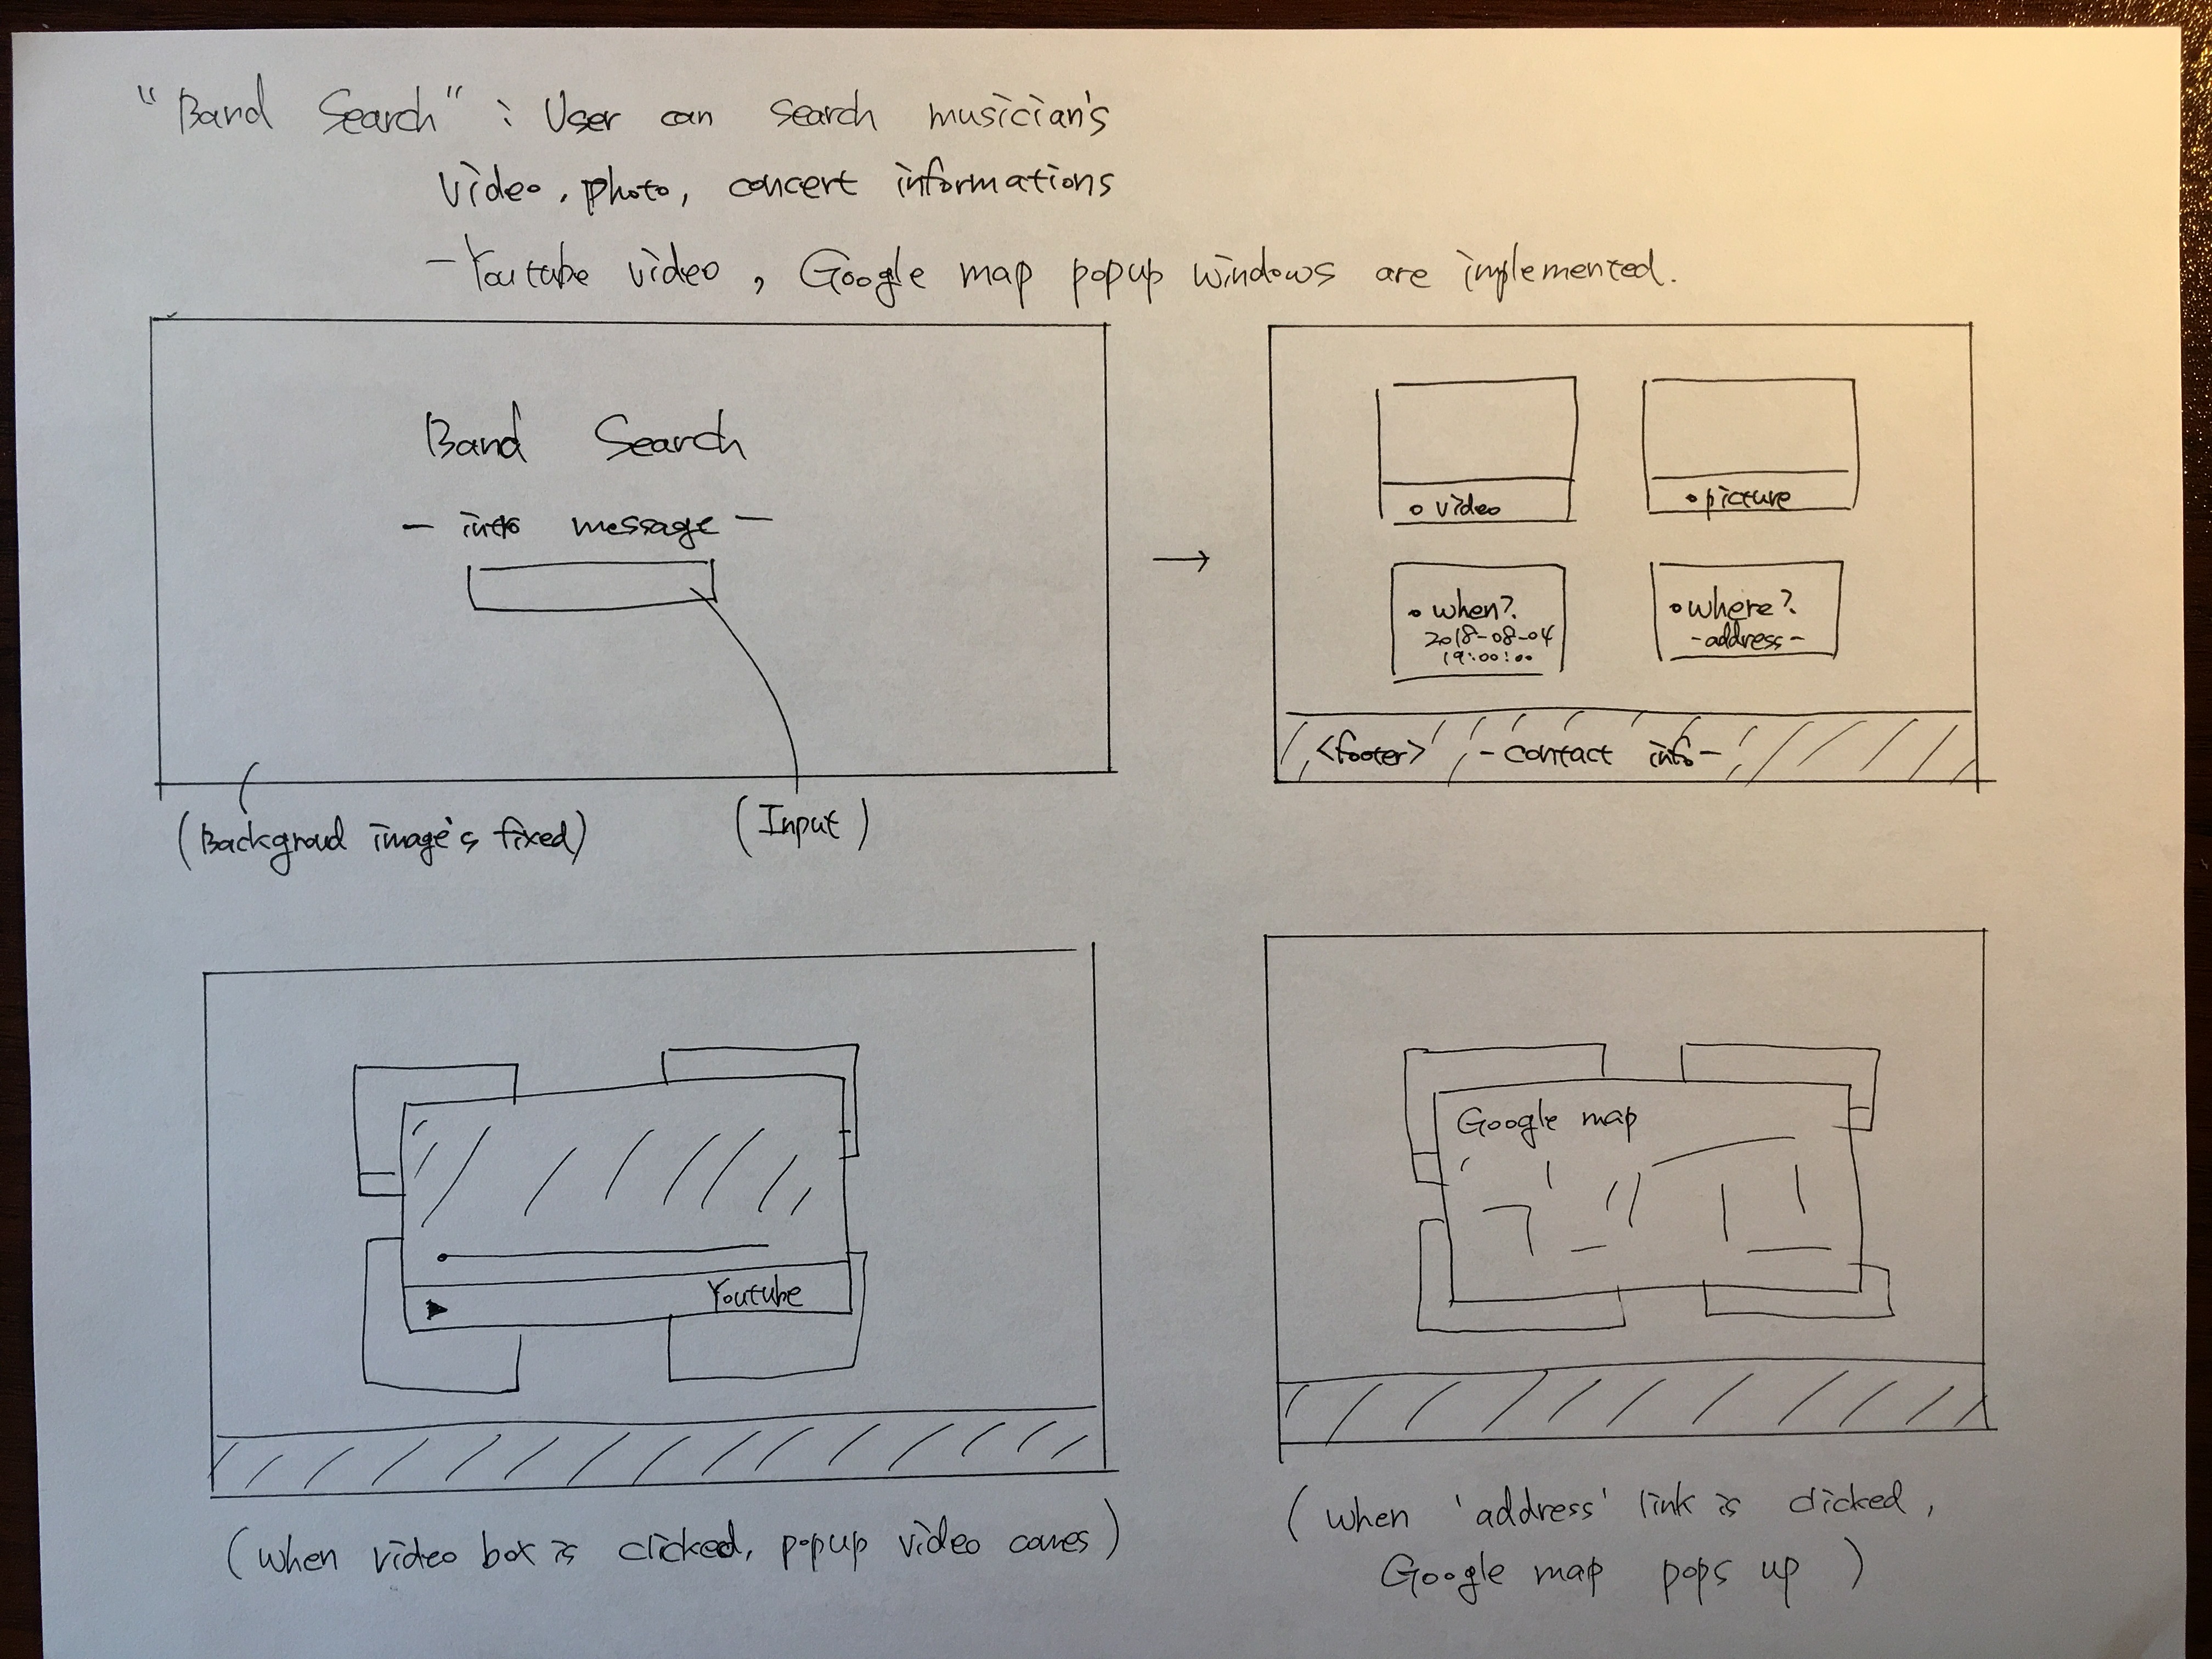 "Band Search" : User can search musician's
video, photo, concert informations
- Youtube video, Google map popup windows are implemented.
Band Search
- intro message -
(Backgroud image's fixed)
(Input)
→
• video
• picture
• when?
2018-08-04
19:00:00
• where?
- address -
<footer> - contact info -
Youtube
(when video box is clicked, popup video comes)
Google map
(when 'address' link is clicked,
Google map pops up)